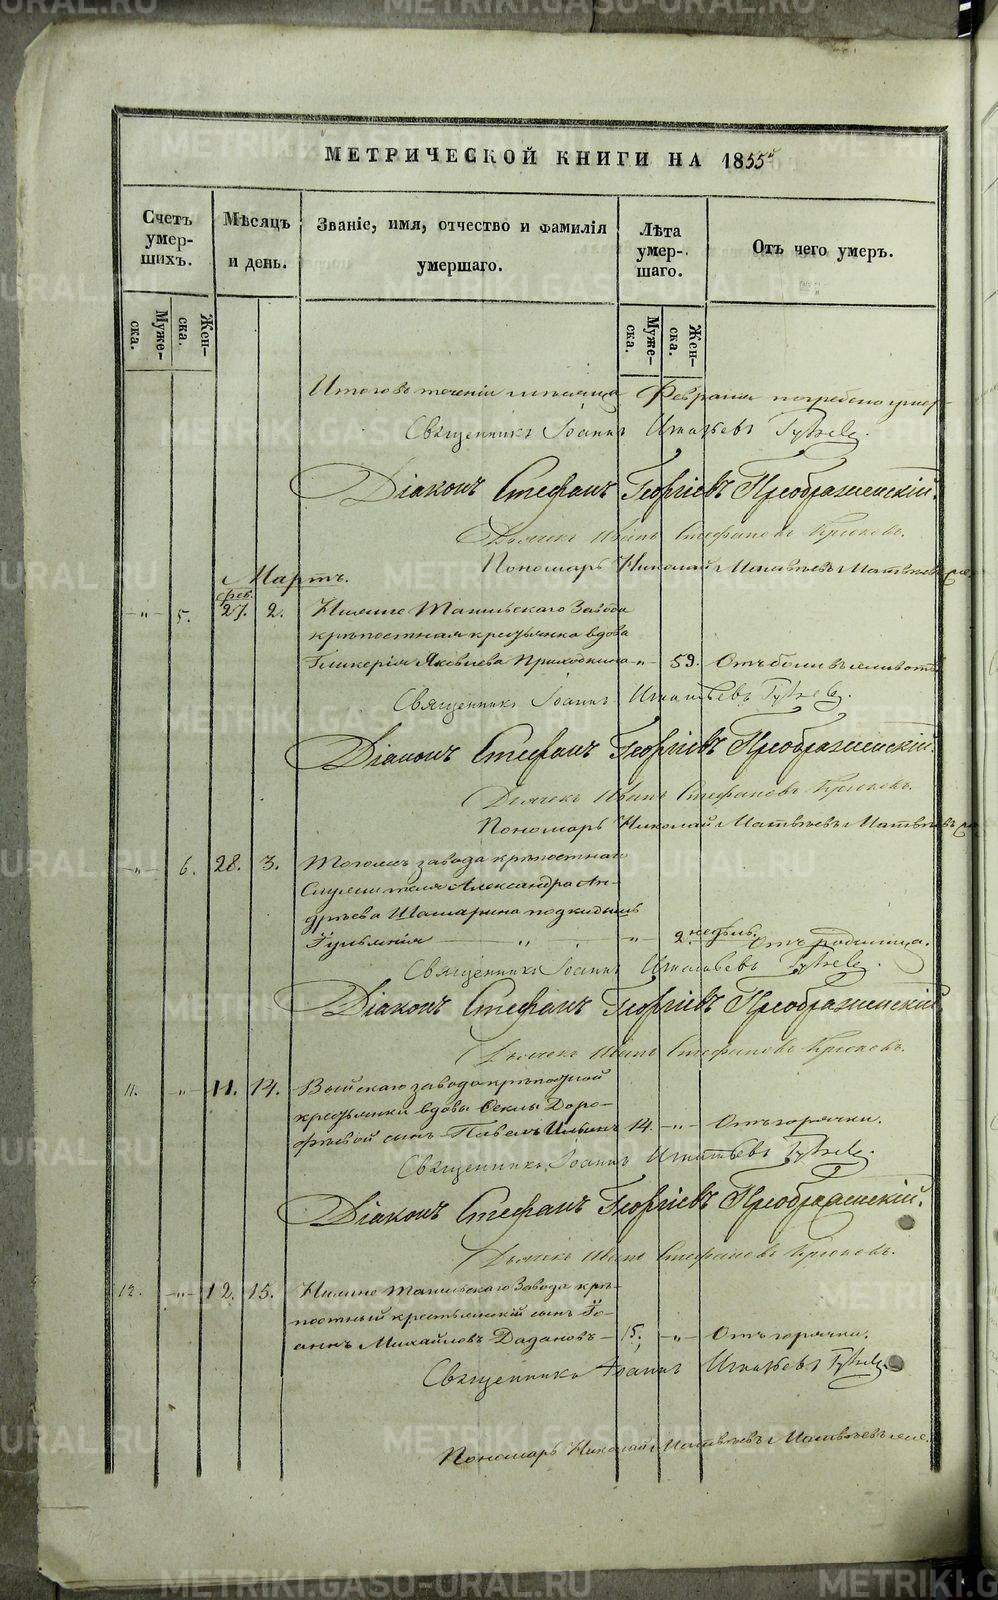 МЕТРИЧЕСКОЙ КНИГИ НА 1855й
Счетъ умер-шихъ.
Мѣсяцъ и день.
Званіе, имя, отчество и фамилія умершаго.
Лѣта умер-шаго.
Отъ чего умеръ.
Муже-ска.
Жен-ска.
Муже-ска.
Жен-ска.
Итого въ теченіи мѣсяца Февраля погребено умер-
Священникъ Іоаннъ Игнатьевъ
Діаконъ Стефанъ Георгіевъ Преображенскій.
Дьячекъ Иванъ Стефановъ Крюковъ.
Пономарь Николай Матвѣевъ
Мартъ.
фев.
-"- 5. 27. 2. Нижне Тагильскаго Завода
крѣпостная крестьянка вдова
Гликерія Яковлева -"- 59. Отъ боли въ животѣ
Священникъ Іоаннъ Игнатьевъ
Діаконъ Стефанъ Георгіевъ Преображенскій.
Дьячекъ Иванъ Стефановъ Крюковъ.
Пономарь Николай Матвѣевъ
-"- 6. 28. 3. Тогожъ завода крѣпостнаго
Служителя Александра Ан-
дрѣева Шамарина подкидышъ
-"- 2 недѣль. Отъ родимца.
Священникъ Іоаннъ Игнатьевъ
Діаконъ Стефанъ Георгіевъ Преображенскій
Дьячекъ Иванъ Стефановъ Крюковъ.
11. -"- 11. 14. Выйскаго завода крѣпостной
крестьянки вдовы Феклы Доро-
фѣевой сынъ Павелъ Ильинъ 14. -"- Отъ горячки.
Священникъ Іоаннъ Игнатьевъ
Діаконъ Стефанъ Георгіевъ Преображенскій.
Дьячекъ Иванъ Стефановъ Крюковъ.
12. -"- 12. 15. Нижне Тагильскаго Завода крѣ-
постный крестьянскій сынъ Іо-
аннъ Михайловъ Дадановъ 15. -"- Отъ горячки.
Священникъ Іоаннъ Игнатьевъ
Пономарь Николай Матвѣевъ
METRIKI.GASO-URAL.RU